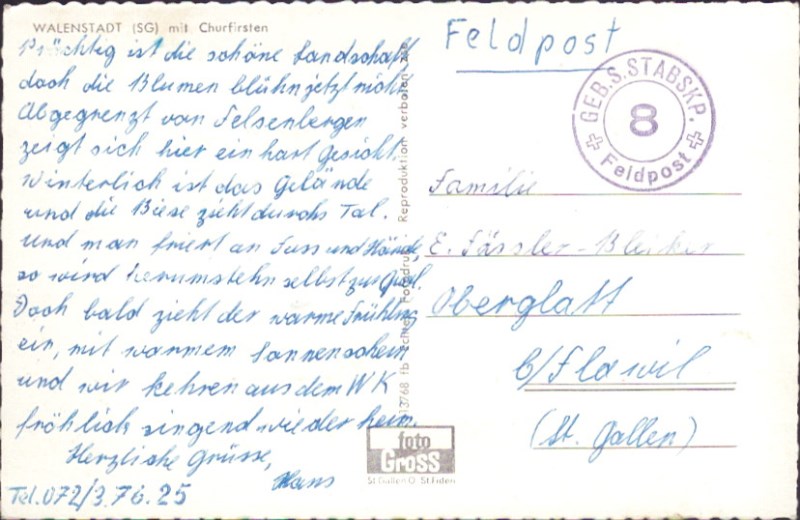 WALENSTADT (SG) mit Churfirsten
Prächtig ist die schöne Landschaft
doch die Blumen blühn jetzt nicht
Abgegrenzt von Felsenbergen
zeigt sich hier ein hart Gesicht
Winterlich ist das Gelände
und die Biese zieht durchs Tal.
und man friert an Fuss und Hände
so wird herumstehn selbst zur Qual.
Doch bald zieht der warme Frühling
ein, mit warmem Sonnenschein
und wir kehren aus dem WK
fröhlich singend wieder heim.
Herzliche Grüsse,
Hans
Tel. 072/3.76.25
Reproduktion verboten
13768
foto
GROSS
St. Gallen O St. Fiden
Feldpost
GEB.S.STABSKP.
8
Feldpost
Familie
E. Fässler-Bleiker
Oberglatt
b/Flawil
(St. Gallen)